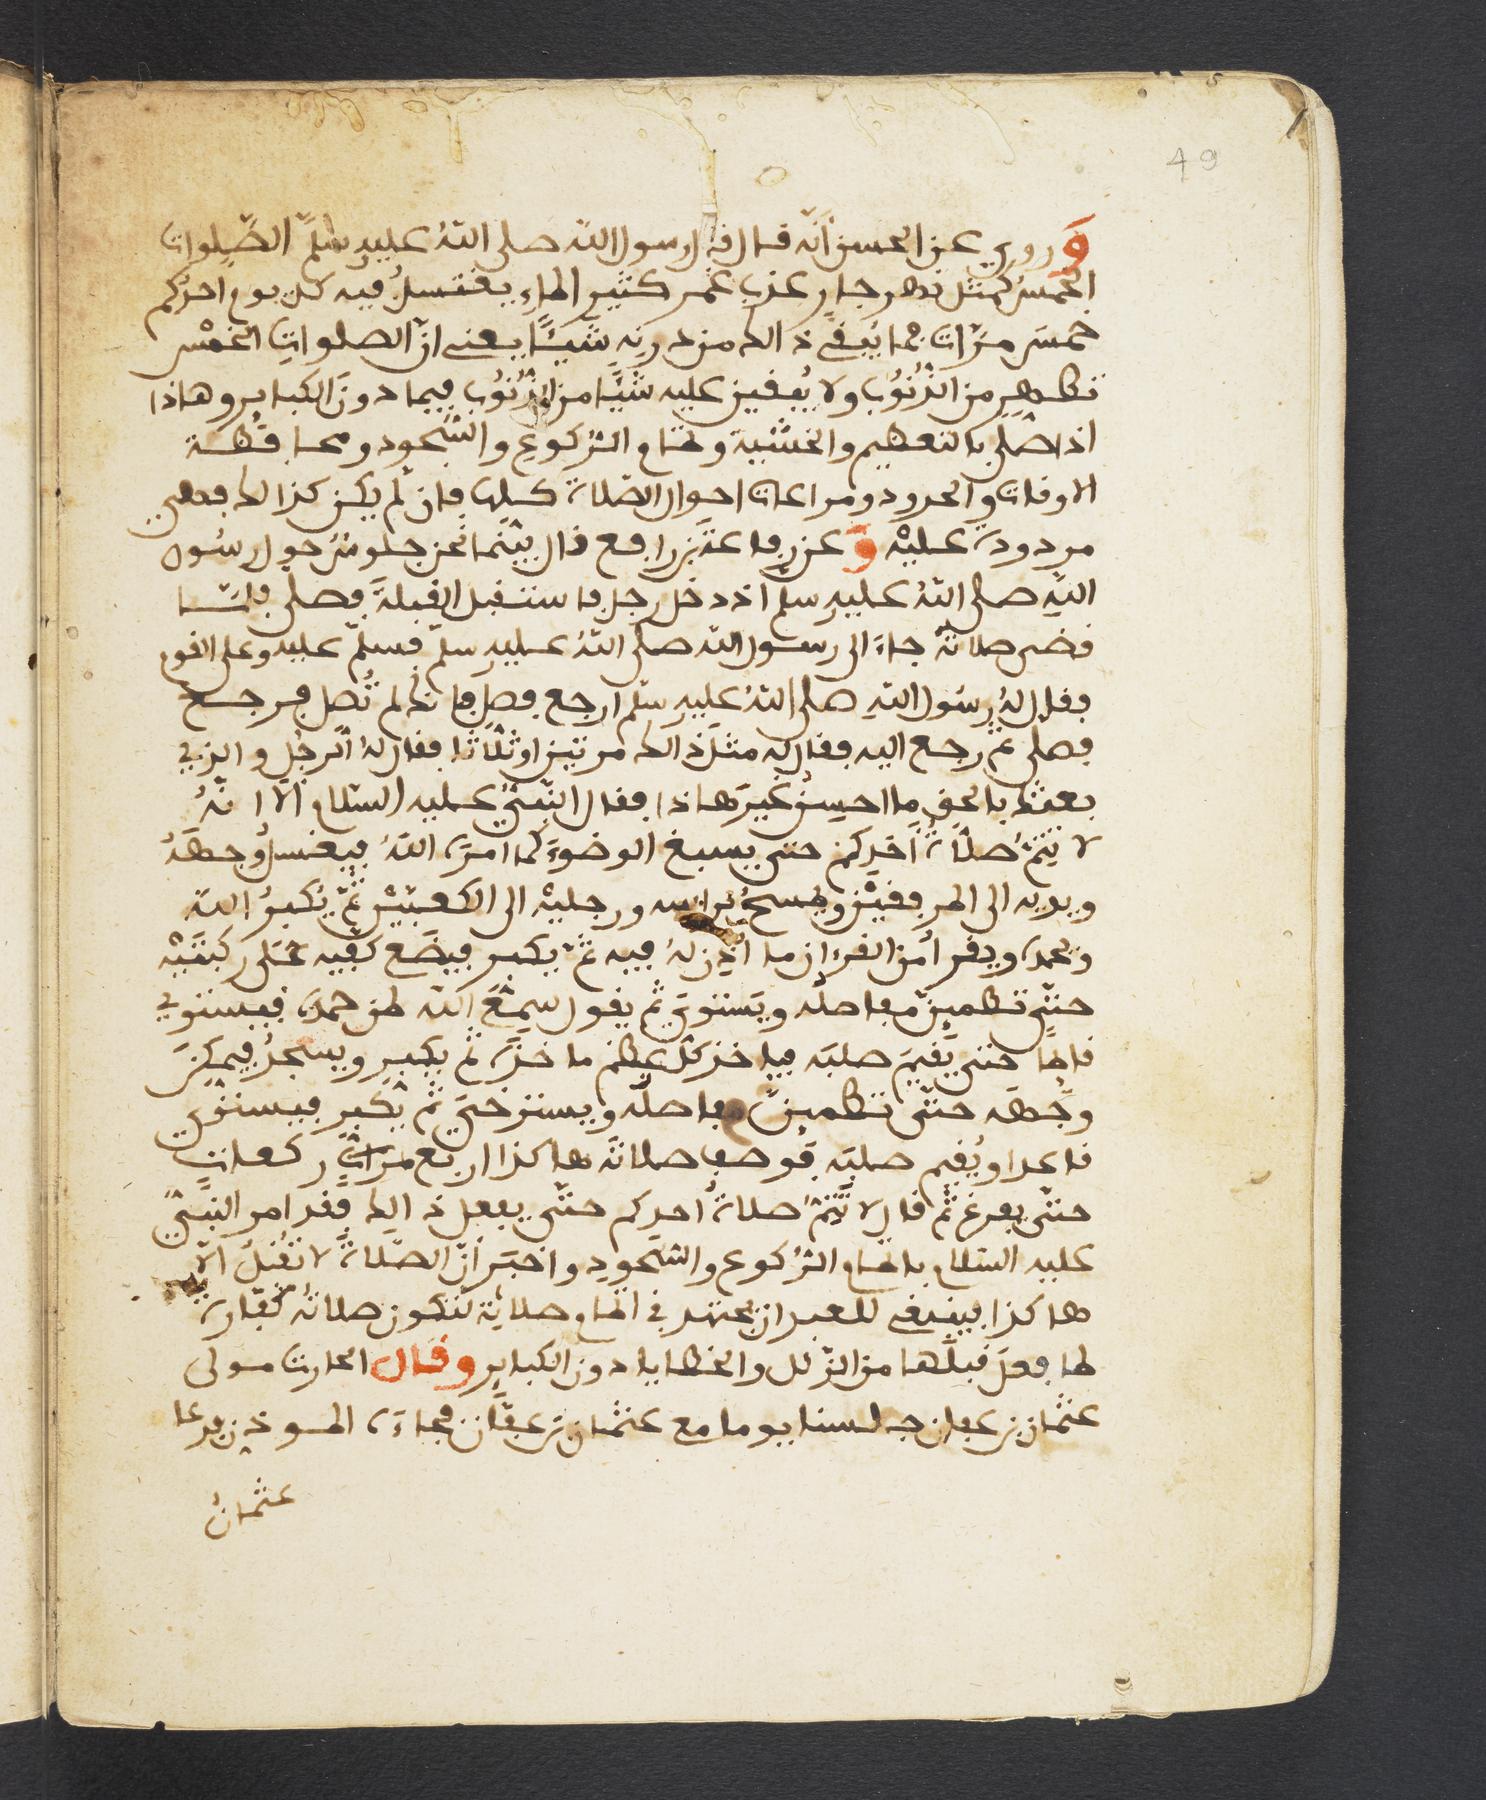 49
وروي عن الحسن أنّه قال قال رسول اللّه صلى اللّهُ عليه وسلم الصّلوات
الخمسُ كمثل نهر جارٍ عذب غمر كثير الماءِ يغتسلُ فيه كل يوم احدُكم
خمسَ مرّات فما يُبقي ذالك من درنِه شيئًا يعني انّ الصلواتِ الخمْس
تطهر من الذُّنُوب ولا يُبقين عليه شيًّا من الذُّنُوب فيما دونَ الكباير وهاذا
اذا صلى بالتعظيم والخشية وتمام الرّكوعِ والسّجود ومحافظة
الاوقات والحدود ومراعات احوال الصّلاة كلها فان لم يكن كذالك فهي
مردودة عليْه وَعن رفاعة بن رافع قال بينما نحن جلوسٌ حول رسُول
اللهِ صلى اللّهُ عليه وسلم اذ دخل رجل فاستقبل القبلةَ فصلى فلمّا
قضى صلاتهُ جاءَ الى رسول اللّه صلى اللّهُ عليه وسلّم فسلّم عليه وعلى القوم
فقال لهُ رسُول اللّهِ صلى اللّهُ عليهِ وسلّم ارجع فصل فانك لم تُصل فرجع
فصلى ثم رجع اليه فقال له مثلَ ذالك مرتين او ثلاثا فقال لهُ الرجُل والذي
بعثك بالحق ما احسِنُ غيرَ هاذا فقال النّبيُّ عليه السّلام الا انّهُ
لا يتمُّ صلاةُ احَدِكم حتى يسبغ الوضوءَ كما امره اللّهُ فيغسلُ وجههُ
ويديه الى المرفقيْن ويمسحُ براسه ورجليْه الى الكعبيْن ثمّ يُكبرُ اللّه
ويحمده ويقرأُ من القرءان ما أُذِن لهُ فيه ثمّ يكبر فيضَع كفّيه على ركبتيْه
حتّى تطمينّ مفاصلُه ويَستوي ثم يقول سمِعَ اللّه لمن حمده فيستوي
قايمًا حتى يُقيمَ صلبَه فياخذ كلّ عظم ماخذَه ثم يكبر ويسجدُ فيمكنَ
وجهَه حتّى تطمينّ مفاصلُه ويسترخيَ ثم يُكبر فيستوي
قاعدا ويُقيم صلبَه فوصف صلاتَه هاكذا اربع مرات ركعات
حتّى يفرغ ثم قال لا تَتِمُّ صلاةُ احدِكم حتّى يفعل ذالك فقد امر النّبيُّ
عليه السّلام باتمام الرُّكوع والسّجودِ واخبَر أنّ الصّلاةَ لا تقبَلُ الّا
هاكذا فينبغي للعبد ان يجتهد في اتمام صلاتِه لتكون صلاتُه كفّارة
لما فعلَ قبلَها من الزّلل والخطايا دون الكباير وقال الحارث مولى
عثمان بن عفان جلسنا يوما مع عثمان بن عفّان فجاءَه الموذن فدعا
عثمانُ